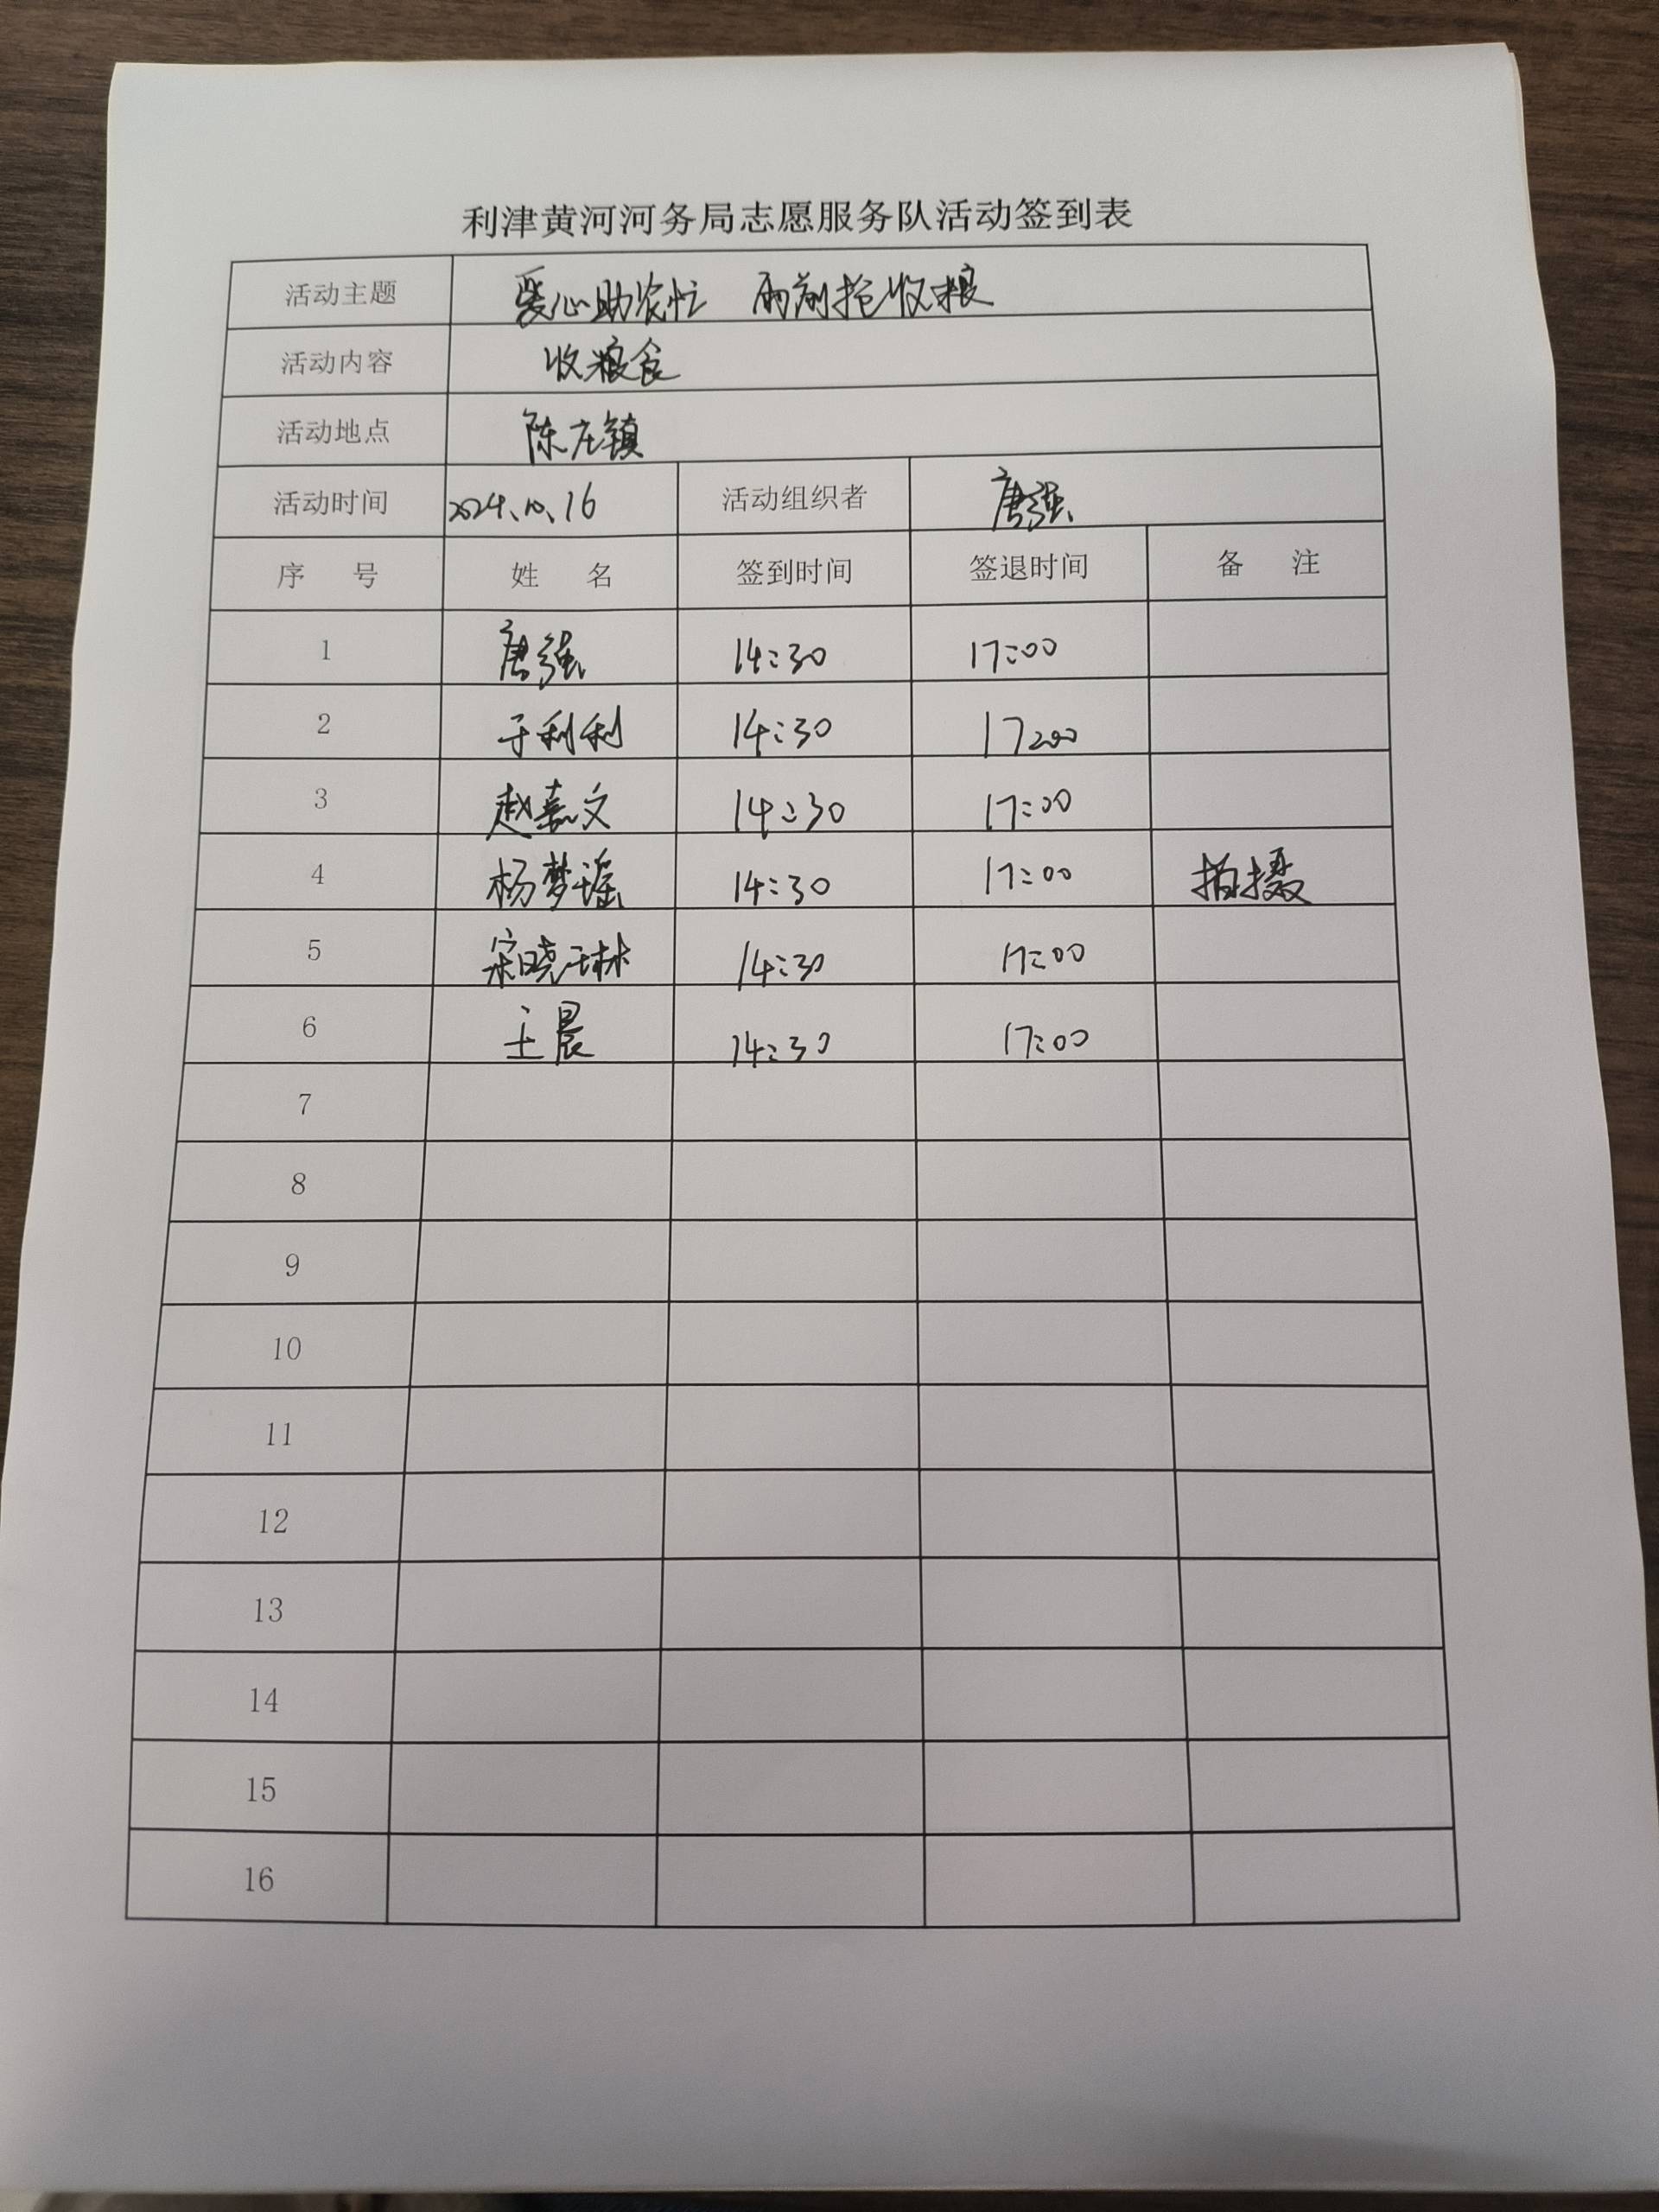 利津黄河河务局志愿服务队活动签到表
活动主题 爱心助农忙 雨前抢收粮
活动内容 收粮食
活动地点 陈庄镇
活动时间 2024.10.16 活动组织者 唐强
序 号 姓 名 签到时间 签退时间 备 注
1 唐强 14:30 17:00
2 于利利 14:30 17:00
3 赵嘉文 14:30 17:00
4 杨梦瑶 14:30 17:00 拍摄
5 宋晓琳 14:30 17:00
6 王晨 14:30 17:00
7
8
9
10
11
12
13
14
15
16